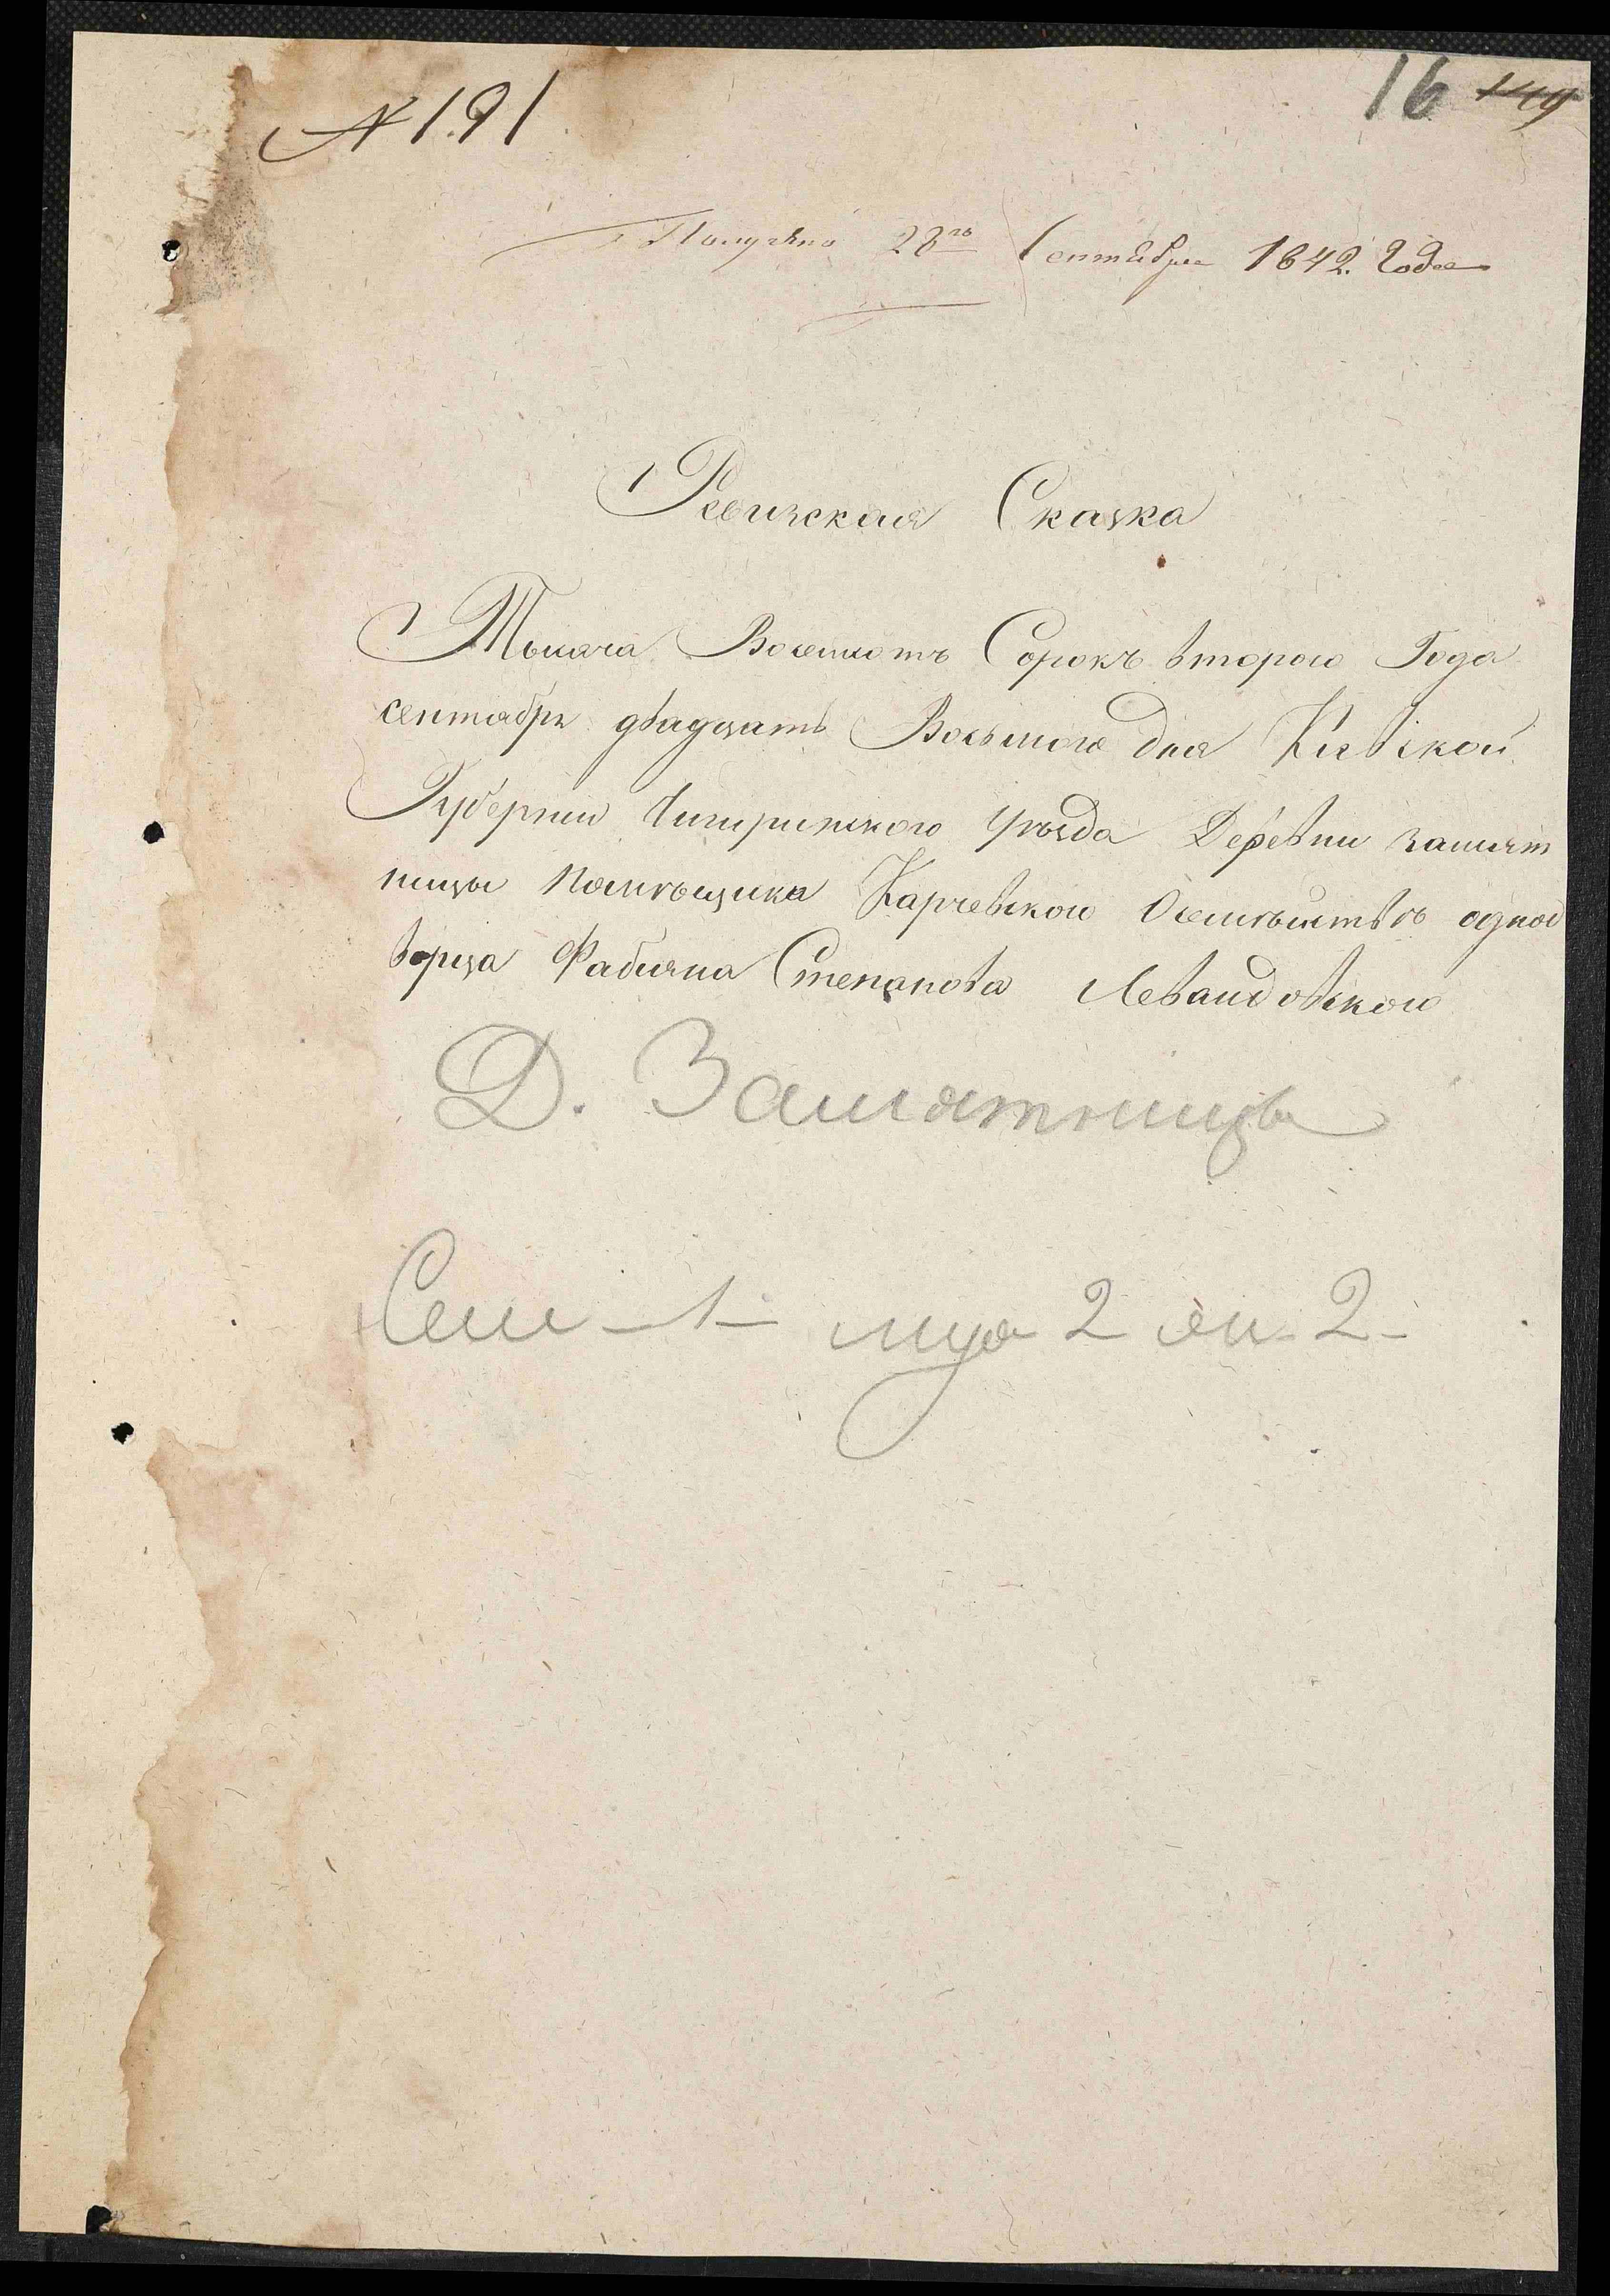 № 191
16 149
Получено 28го Сентября 1842. Года
Ревизская Сказка
Тысяча Восемсотъ Сорокъ второго Года
сентябрь двадцать Восьмого дня Киевской
Губернии Чигиринского уезда Деревни замят
ницы помѣщика Карчевского Осемѣйствѣ однод
ворца Фабияна Степанова Левандовского
Д. Замятница
Сем - 1 - муж 2 жен. 2 -